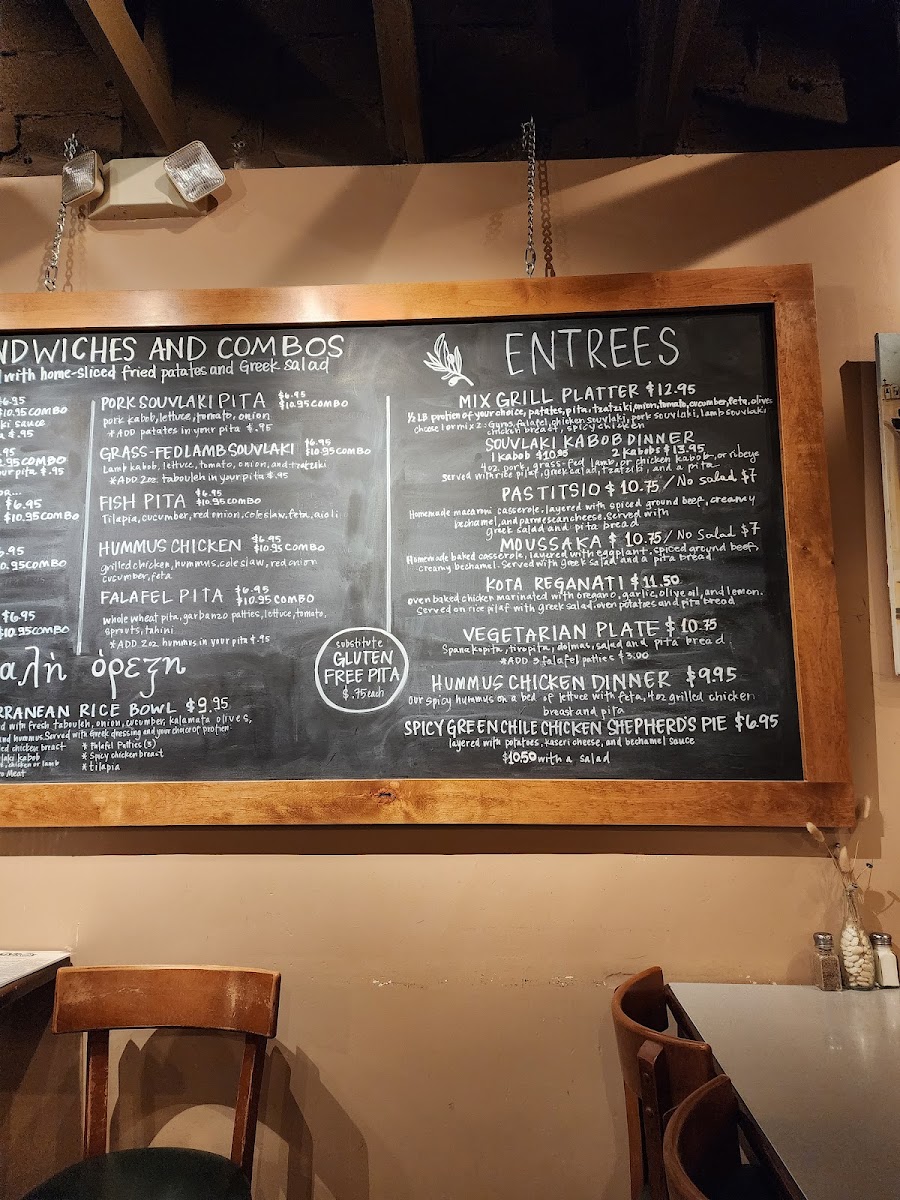 NDWICHES AND COMBOS
with home-sliced fried patates and Greek salad
$6.95
$10.95 COMBO
ki sauce
a $.95
.95
.95 COMBO
ur pita $.95
OR...
$6.95
$10.95 COMBO
6.95
0.95 COMBO
$6.95
$10.95 COMBO
PORK SOUVLAKI PITA $6.95
$10.95 COMBO
pork kabob, lettuce, tomato, onion
*ADD patates in your pita $.95
GRASS-FED LAMB SOUVLAKI $6.95
$10.95 COMBO
Lamb kabob, lettuce, tomato, onion, and tzatziki
*ADD 2oz tabouleh in your pita $.95
FISH PITA $6.95
$10.95 COMBO
Tilapia, cucumber, red onion, coleslaw, feta, aioli
HUMMUS CHICKEN $6.95
$10.95 COMBO
grilled chicken, hummus, coleslaw, red onion
cucumber, feta
FALAFEL PITA $6.95
$10.95 COMBO
whole wheat pita, garbanzo patties, lettuce, tomato,
sprouts, tahini
*ADD 2oz hummus in your pita $.95
αλὴ όρεξη
substitute
GLUTEN
FREE PITA
$.75 each
RRANEAN RICE BOWL $9.95
d with fresh tabouleh, onion, cucumber, kalamata olives,
and hummus. Served with Greek dressing and your choice of protien
ed chicken breast
laki kabob
, chicken or lamb
o Meat
* Falafel Patties (3)
* Spicy chicken breast
* tilapia
ENTREES
MIX GRILL PLATTER $12.95
1/2 LB protien of your choice, patates, pita, tzatziki, onion, tomato, cucumber, feta, olives
choose 1 or mix 2: Gyros, falafel, chicken souvlaki, pork souvlaki, lamb souvlaki
chicken breast, spicy chicken
SOUVLAKI KABOB DINNER
1 kabob $10.95 2 kabobs $13.95
4oz. pork, grass-fed lamb, or chicken kabob, or ribeye
served with rice pilaf, greek salad, tzatziki, and a pita
PASTITSIO $10.75 / No salad $7
Homemade macaroni casserole, layered with spiced ground beef, creamy
bechamel, and parmesan cheese. Served with
greek salad and pita bread
MOUSSAKA $10.75 / No Salad $7
Homemade baked casserole, layered with eggplant, spiced ground beef,
creamy bechamel. Served with greek salad and a pita bread
KOTA REGANATI $11.50
oven baked chicken marinated with oregano, garlic, olive oil, and lemon.
Served on rice pilaf with greek salad, oven potatoes and pita bread
VEGETARIAN PLATE $10.75
Spanakopita, tiropita, dolmas, salad and pita bread
*ADD 3 falafel patties $3.00
HUMMUS CHICKEN DINNER $9.95
our spicy hummus on a bed of lettuce with feta, 4oz grilled chicken
breast and pita
SPICY GREEN CHILE CHICKEN SHEPHERD'S PIE $6.95
layered with potatoes, kaseri cheese, and bechamel sauce
$10.50 with a salad